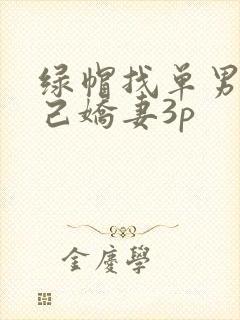 绿帽找单男
己嬌妻3p
金慶學